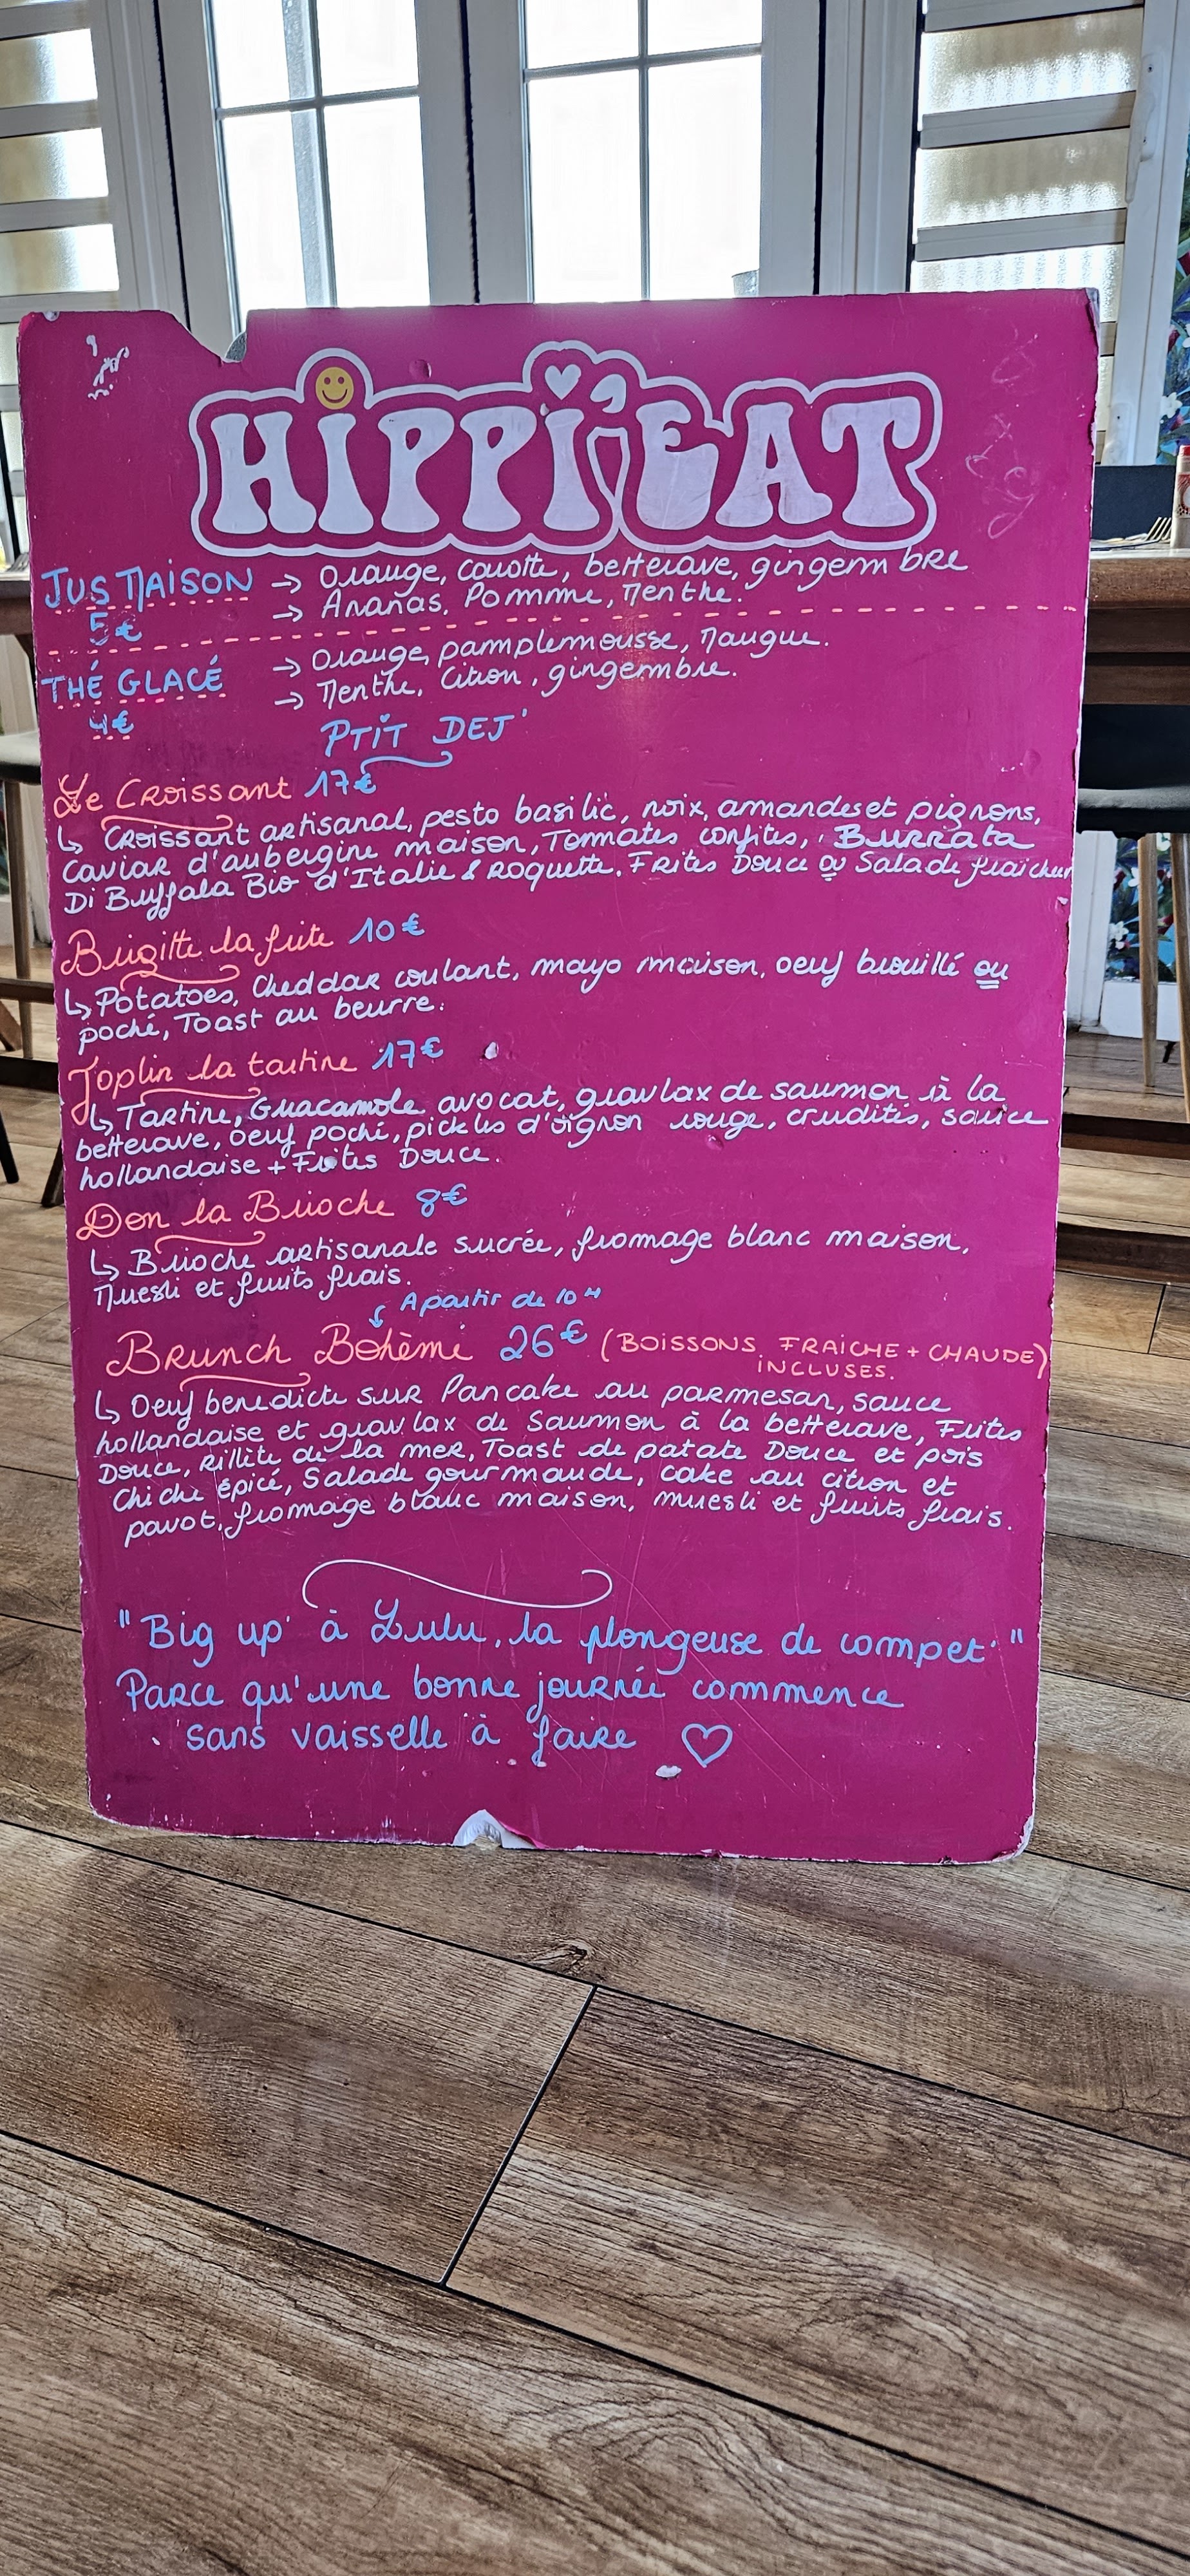 HiPPi'EAT
JUS MAISON → Orange, carotte, betterave, gingembre
5€ → Ananas, Pomme, Menthe.
THÉ GLACÉ → Orange, pamplemousse, Mangue.
4€ → Menthe, Citron, gingembre.
PTiT DEJ'
Le Croissant 17€
↳ Croissant artisanal, pesto basilic, noix, amandes et pignons,
Caviar d'aubergine maison, Tommates confites, Burrata
Di Buffala Bio d'Italie & Roquette. Frites Douce ou Salade fraicheur
Brigitte la frite 10€
↳ Potatoes, Cheddar coulant, mayo maison, oeuf brouillé ou
poché, Toast au beurre.
Joplin la tartine 17€
↳ Tartine, Guacamole avocat, gravlax de saumon à la
betterave, oeuf poché, pickles d'oignon rouge, crudités, sauce
hollandaise + Frites Douce.
Don la Brioche 8€
↳ Brioche artisanale sucrée, fromage blanc maison,
Muesli et fruits frais.
A partir de 10H
BRUNCH Bohème 26€ (BOISSONS FRAiCHE + CHAUDE)
iNCLUSES.
↳ Oeuf benedicte sur Pancake au parmesan, sauce
hollandaise et gravlax de Saumon à la betterave, Frites
Douce, Rillète de la mer, Toast de patate Douce et pois
Chiche épicé, Salade gourmande, cake au citron et
pavot, fromage blanc maison, muesli et fruits frais.
"Big up' à Lulu, la plongeuse de compet'"
Parce qu'une bonne journée commence
sans vaisselle à faire ♡